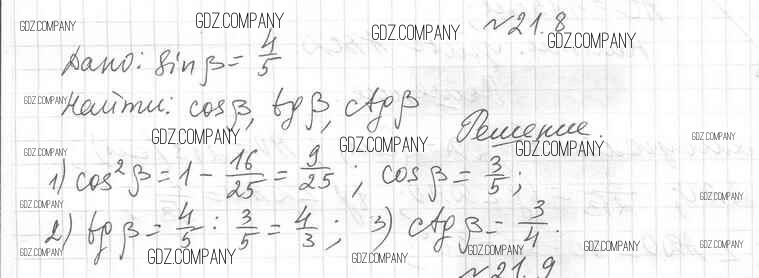 GDZ.COMPANY GDZ.COMPANY GDZ.COMPANY №21.8
GDZ.COMPANY
Дано: sin β = 4/5
GDZ.COMPANY
Найти: cos β, tg β, ctg β
GDZ.COMPANY GDZ.COMPANY Решение. GDZ.COMPANY GDZ.COMPANY
GDZ.COMPANY
1) cos² β = 1 - 16/25 = 9/25; cos β = 3/5;
GDZ.COMPANY GDZ.COMPANY GDZ.COMPANY GDZ.COMPANY
2) tg β = 4/5 : 3/5 = 4/3; 3) ctg β = 3/4.
GDZ.COMPANY GDZ.COMPANY GDZ.COMPANY GDZ.COMPANY GDZ.COMPANY GDZ.COMPANY
№21.9